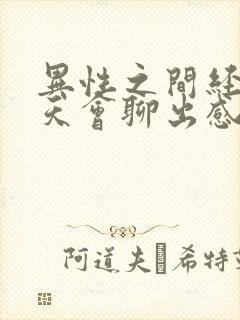 異性之間経
天會聊出感
阿道夫 希特